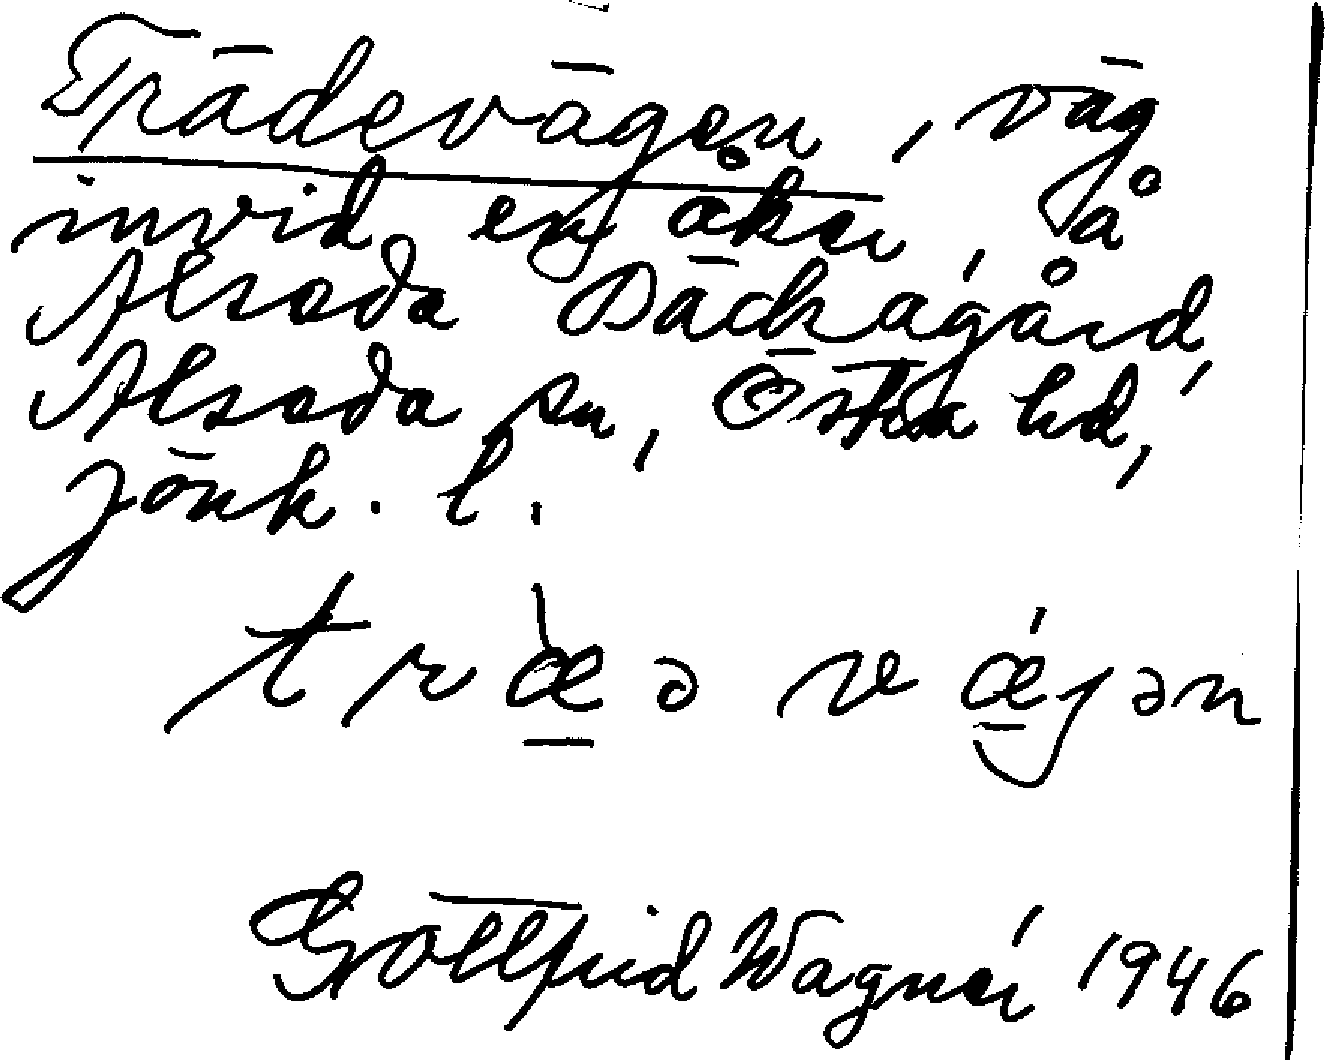 Trädevägen, väg
invid en åker, å
Alseda Bäckagård,
Alseda sn, Östra hd,
Jönk. l.
træ̀ə vǽjən
Gottfrid Wagnér 1946